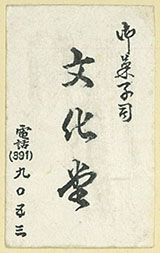 御菓子司
文化堂
電話
(391)
九〇五三